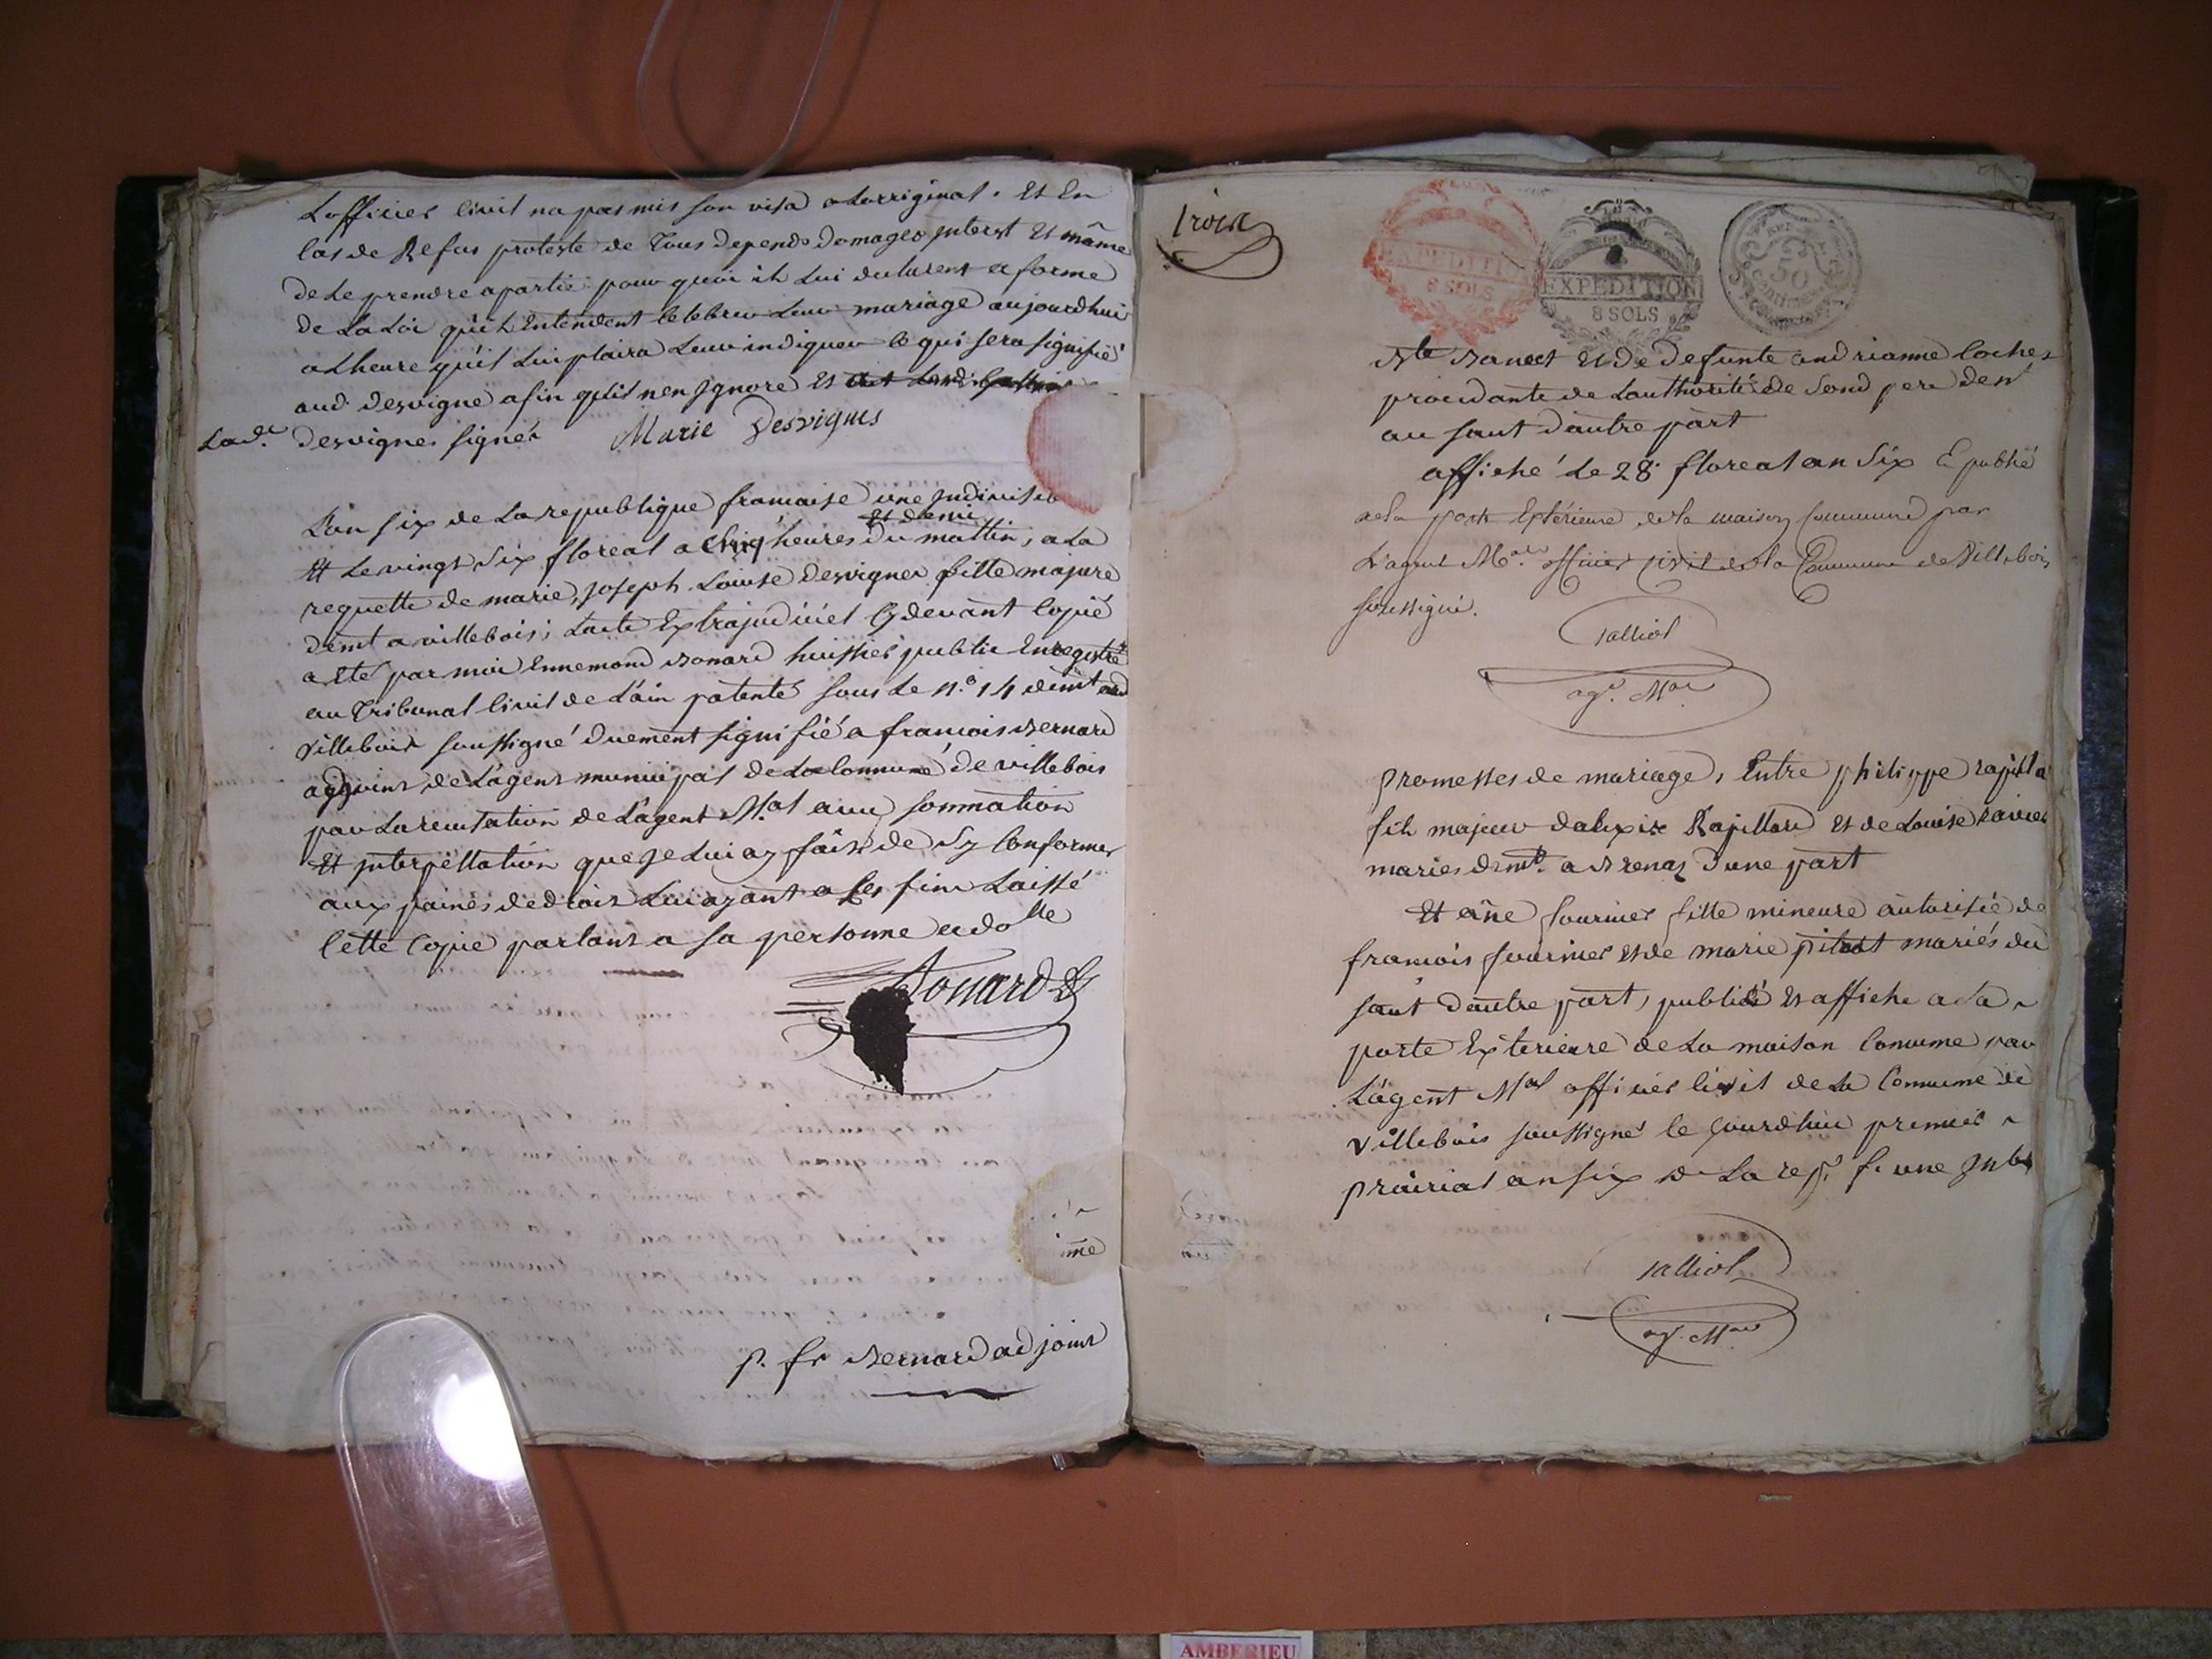 L'officier civil na pas mis son visa a Lorriginal. Et En
Cas de Refus proteste de Tous depends domages jnterest Et même
de Le prendre apartie pour quoi ils Lui declarent a forme
de La Loi qu'ils Entendent celebrer Leur mariage aujourdhui
a Lheure qu'il Lui plaira Leur indiquer ce qui sera signifié
aud desvigne afin qu'il n'en jgnore Et
Lade. desvignes signée Marie Desvignes
L'an six de La republique francaise une jndivisib
Et Le vingt Six floreal a Cinq heures Et demi du mattin, a La
requette de marie, joseph Louise desvignes fille majure
demt a villebois; L'acte Extrajudiciel Cydevant Copié
a Eté par moi Ennemond Bonard huissier public Enregistré
au Tribunal Civil de L'ain patenté sous Le n.o 14 demt aud
villebois soussigné duement signifié a francois Bernard
adjoint de L'agent municipal de La Commune de villebois
par La recusation de L'agent M.al avec sommation
Et jnterpellation que je Lui ay fait de Sy Conformer
aux paines de droit Lui ayant a Ces fins Laissé
Cette Copie parlant a sa personne a dolle
Bonard
p. fs Bernard adjoint
trois
EXPEDITION
8 SOLS
EXPEDITION
8 SOLS
50
Centimes
Et de defunte andrianne Cochet
procedante de Lauthorité de Sond pere demt
au saut dautre part
affiché Le 28 floreal an Six & publié
a la porte Extérieure de la maison Commune par
L'agent M.al officier civil de la Commune de Villebois
soussigné.
Talliol
agt. Mal
promesses de mariage, Entre philippe
fils majeur dalexix Rapillard Et de Louise
mariés demt. a Brenaz d'une part
Et ane fournier fille mineure autorisée de
francois fournier Et de marie mariés du
saut d'autre part, publié Et affiche a La
porte Exterieure de La maison Comume par
L'agent Mal officier Civil de La Comume de
villebois soussigné Ce jourdhui premier
prairial an six de La rep. f. une
Talliol
agt. Mal
AMBERIEU